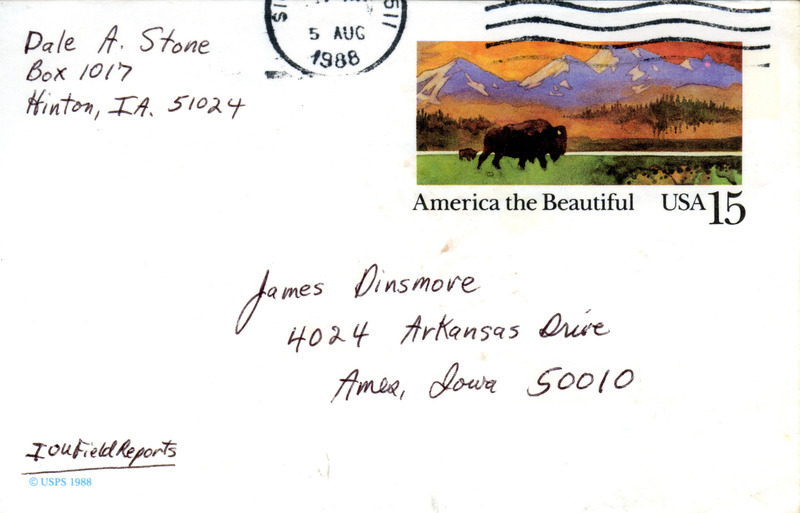 Dale A. Stone
Box 1017
Hinton, IA. 51024
5 AUG
1988
America the Beautiful USA 15
James Dinsmore
4024 Arkansas Drive
Ames, Iowa 50010
IOU Field Reports
© USPS 1988